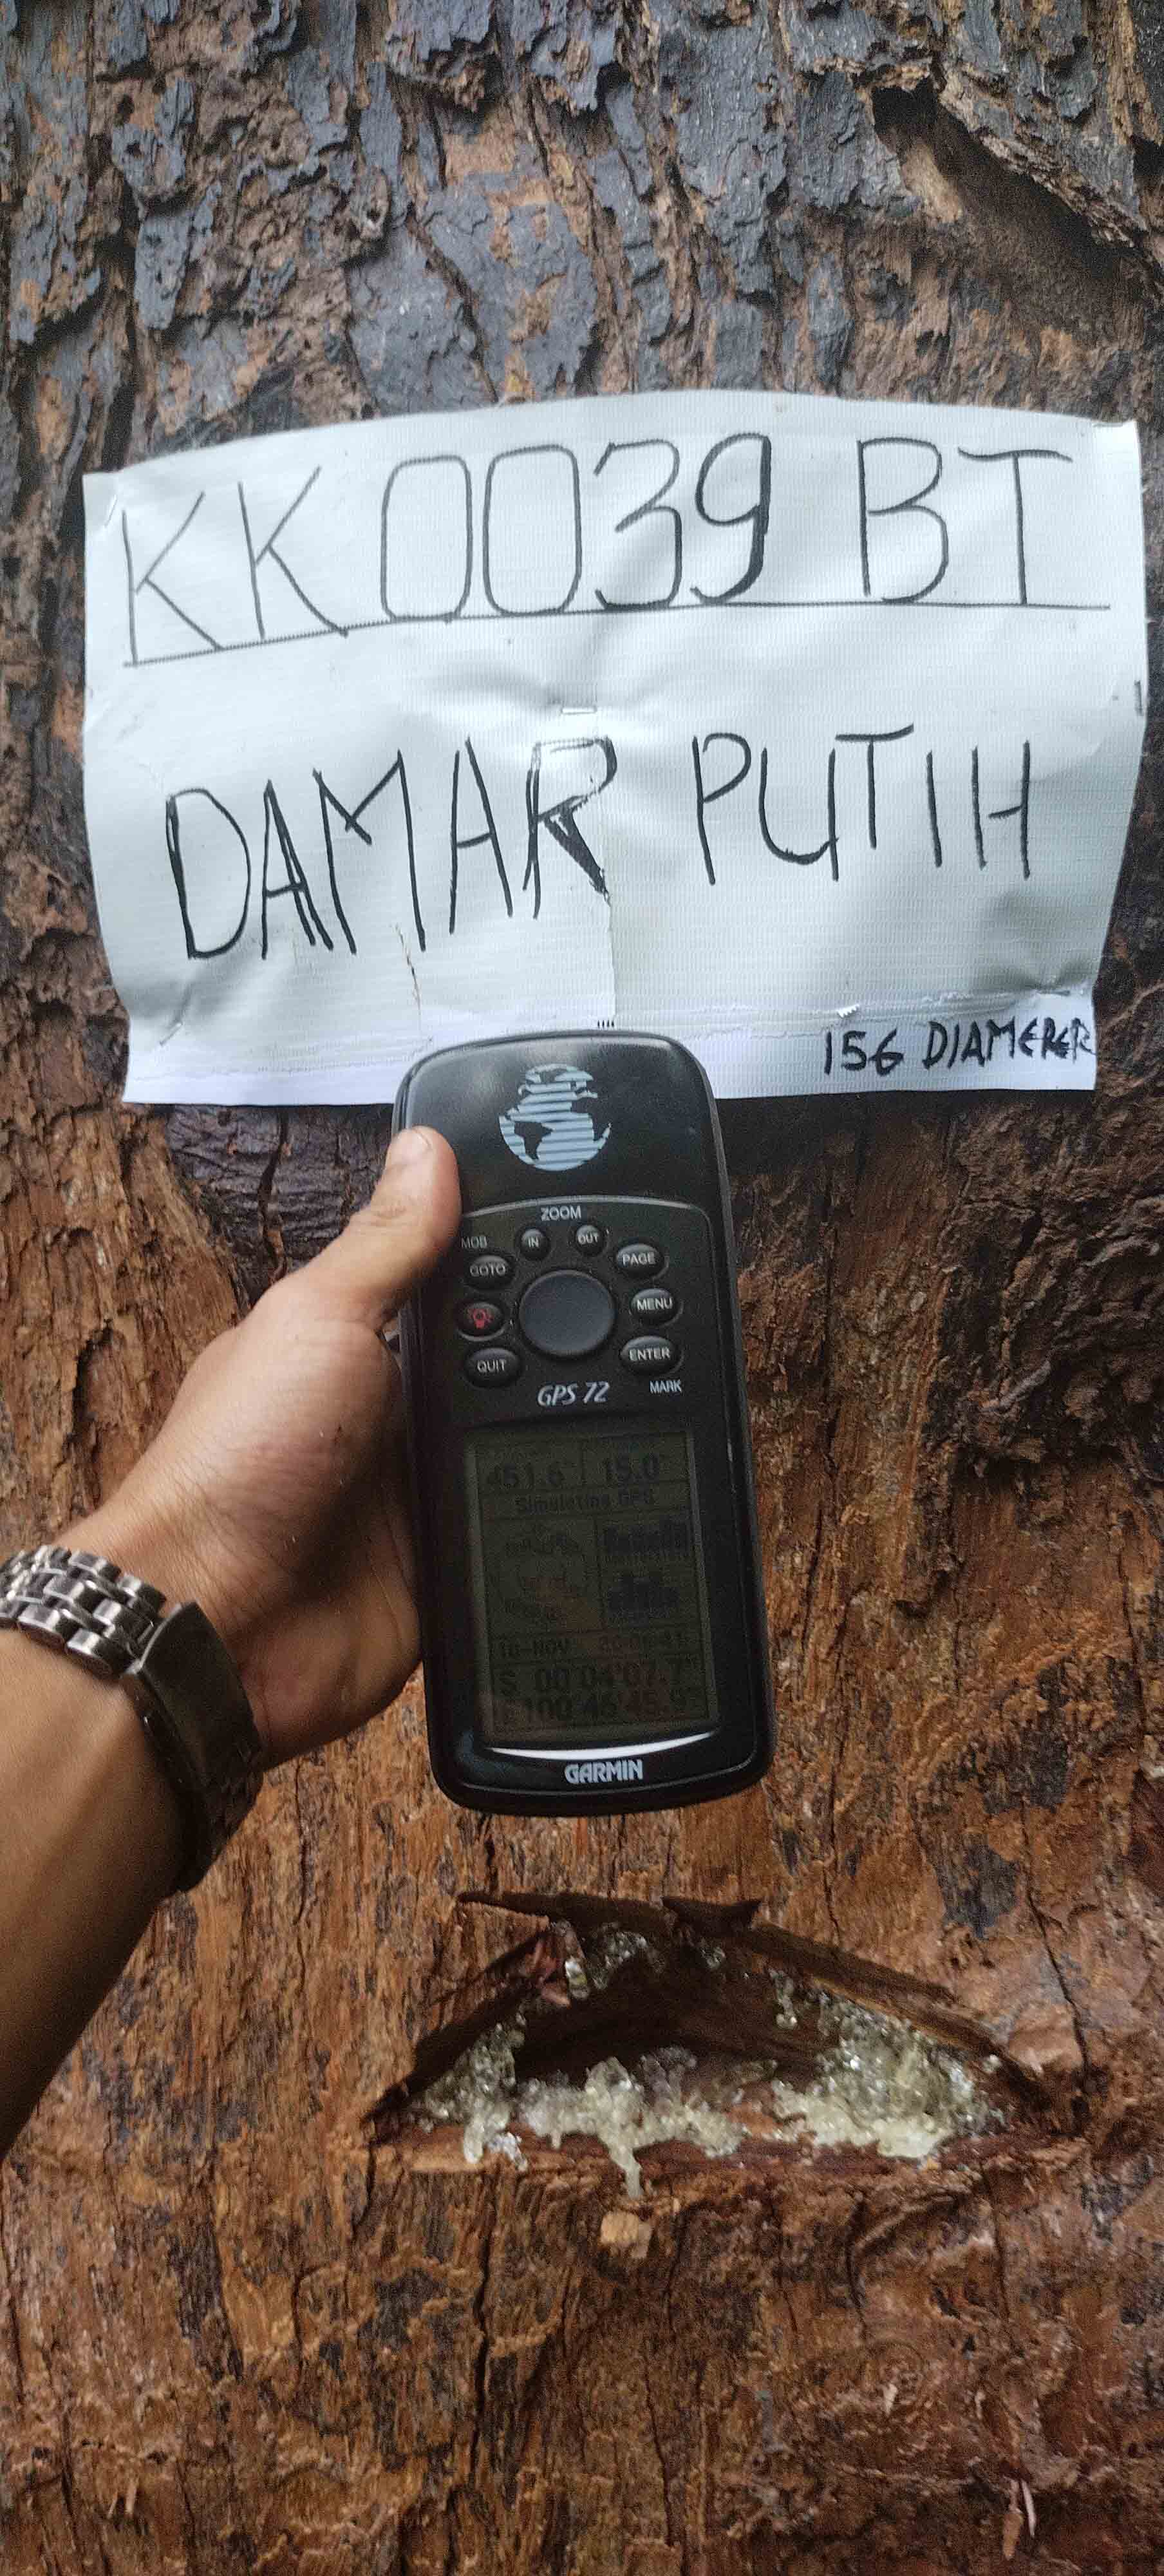 KK 0039 BT
DAMAR PUTIH
156 DIAMERER
ZOOM
MOB IN OUT
GOTO PAGE
MENU
QUIT ENTER
GPS 72 MARK
451.6 15.0
Simulating GPS
S 00°04'07.7"
E100°46'45.9"
GARMIN